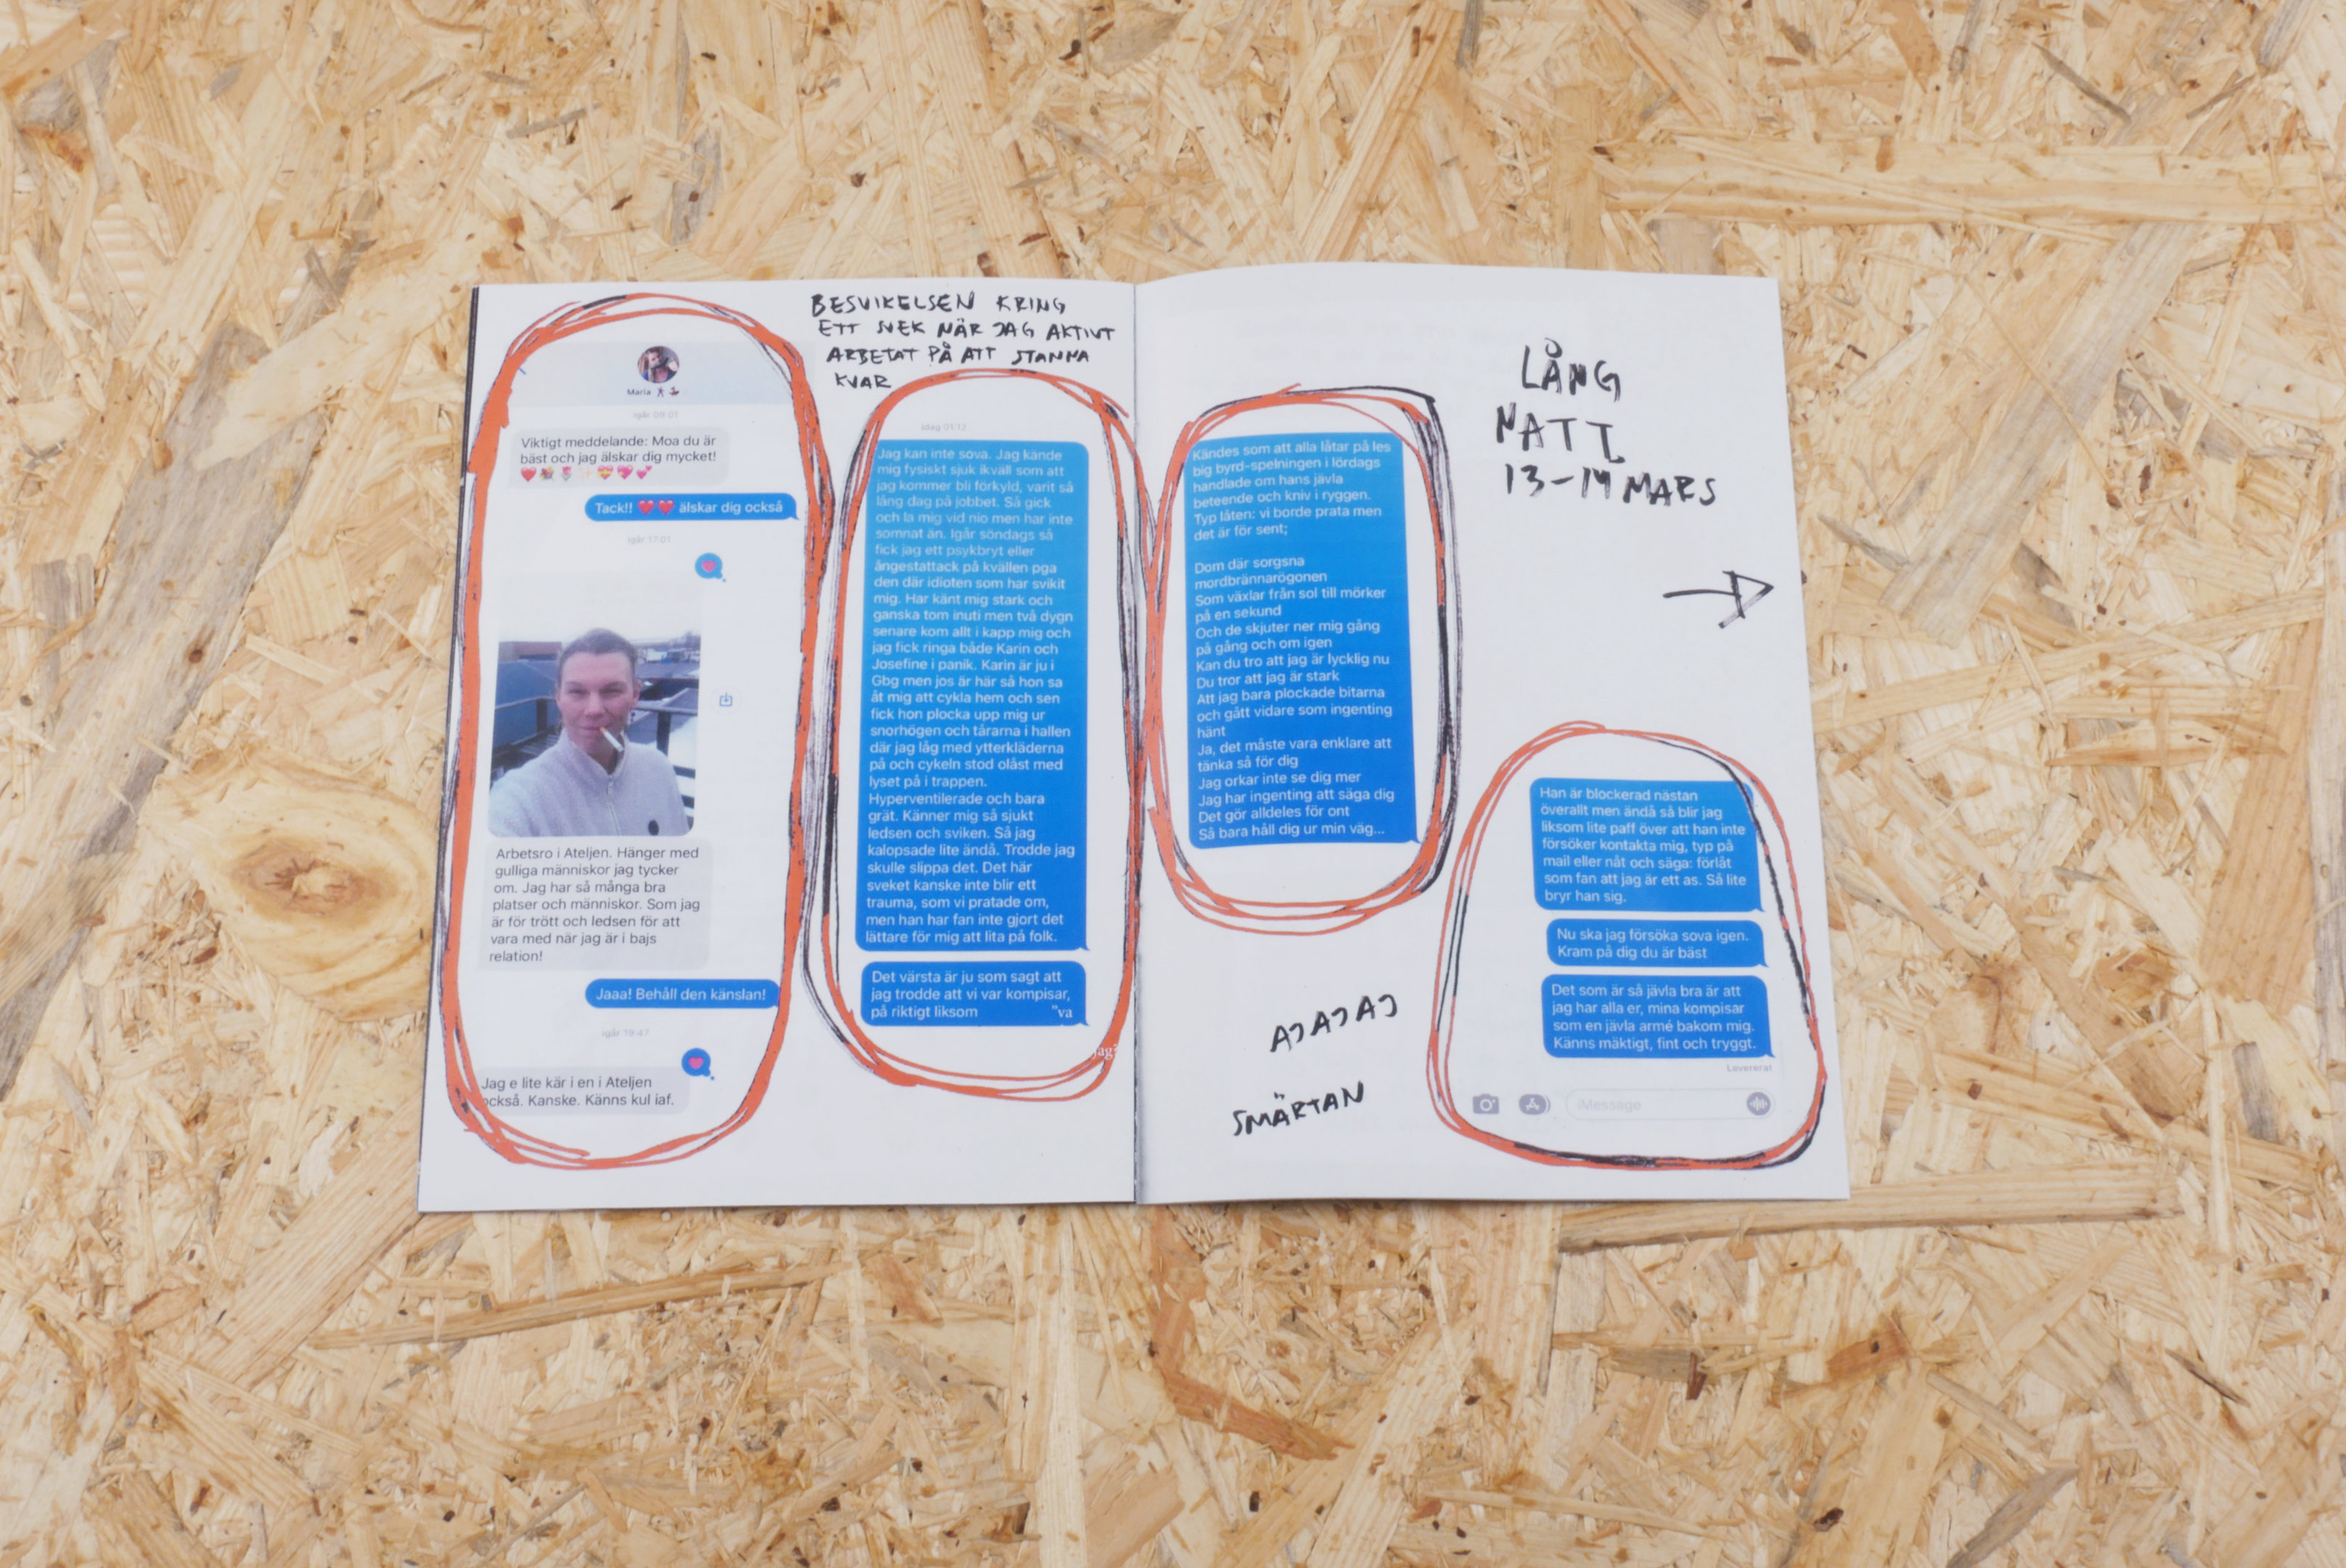 BESVIKELSEN KRING
ETT SVEK NÄR JAG AKTIVT
ARBETAT PÅ ATT STANNA
KVAR
Maria
Igår 09:07
Viktigt meddelande: Moa du är
bäst och jag älskar dig mycket!
Tack!! ❤️ ❤️ älskar dig också
Igår 17:01
Arbetsro i Ateljen. Hänger med
gulliga människor jag tycker
om. Jag har så många bra
platser och människor. Som jag
är för trött och ledsen för att
vara med när jag är i bajs
relation!
Jaaa! Behåll den känslan!
Igår 19:47
Jag e lite kär i en i Ateljen
också. Kanske. Känns kul iaf.
Idag 01:12
Jag kan inte sova. Jag kände
mig fysiskt sjuk ikväll som att
jag kommer bli förkyld, varit så
lång dag på jobbet. Så gick
och la mig vid nio men har inte
somnat än. Igår söndags så
fick jag ett psykbryt eller
ångestattack på kvällen pga
den där idioten som har svikit
mig. Har känt mig stark och
ganska tom inuti men två dygn
senare kom allt i kapp mig och
jag fick ringa både Karin och
Josefine i panik. Karin är ju i
Gbg men jos är här så hon sa
åt mig att cykla hem och sen
fick hon plocka upp mig ur
snorhögen och tårarna i hallen
där jag låg med ytterkläderna
på och cykeln stod olåst med
lyset på i trappen.
Hyperventilerade och bara
grät. Känner mig så sjukt
ledsen och sviken. Så jag
kalopsade lite ändå. Trodde jag
skulle slippa det. Det här
sveket kanske inte blir ett
trauma, som vi pratade om,
men han har fan inte gjort det
lättare för mig att lita på folk.
Det värsta är ju som sagt att
jag trodde att vi var kompisar,
på riktigt liksom "va
jag?
Kändes som att alla låtar på les
big byrd-spelningen i lördags
handlade om hans jävla
beteende och kniv i ryggen.
Typ låten: vi borde prata men
det är för sent;
Dom där sorgsna
mordbrännarögonen
Som växlar från sol till mörker
på en sekund
Och de skjuter ner mig gång
på gång och om igen
Kan du tro att jag är lycklig nu
Du tror att jag är stark
Att jag bara plockade bitarna
och gått vidare som ingenting
hänt
Ja, det måste vara enklare att
tänka så för dig
Jag orkar inte se dig mer
Jag har ingenting att säga dig
Det gör alldeles för ont
Så bara håll dig ur min väg...
LÅNG
NATT
13-14 MARS
AJAJAJ
SMÄRTAN
Han är blockerad nästan
överallt men ändå så blir jag
liksom lite paff över att han inte
försöker kontakta mig, typ på
mail eller nåt och säga: förlåt
som fan att jag är ett as. Så lite
bryr han sig.
Nu ska jag försöka sova igen.
Kram på dig du är bäst
Det som är så jävla bra är att
jag har alla er, mina kompisar
som en jävla armé bakom mig.
Känns mäktigt, fint och tryggt.
Levererat
iMessage